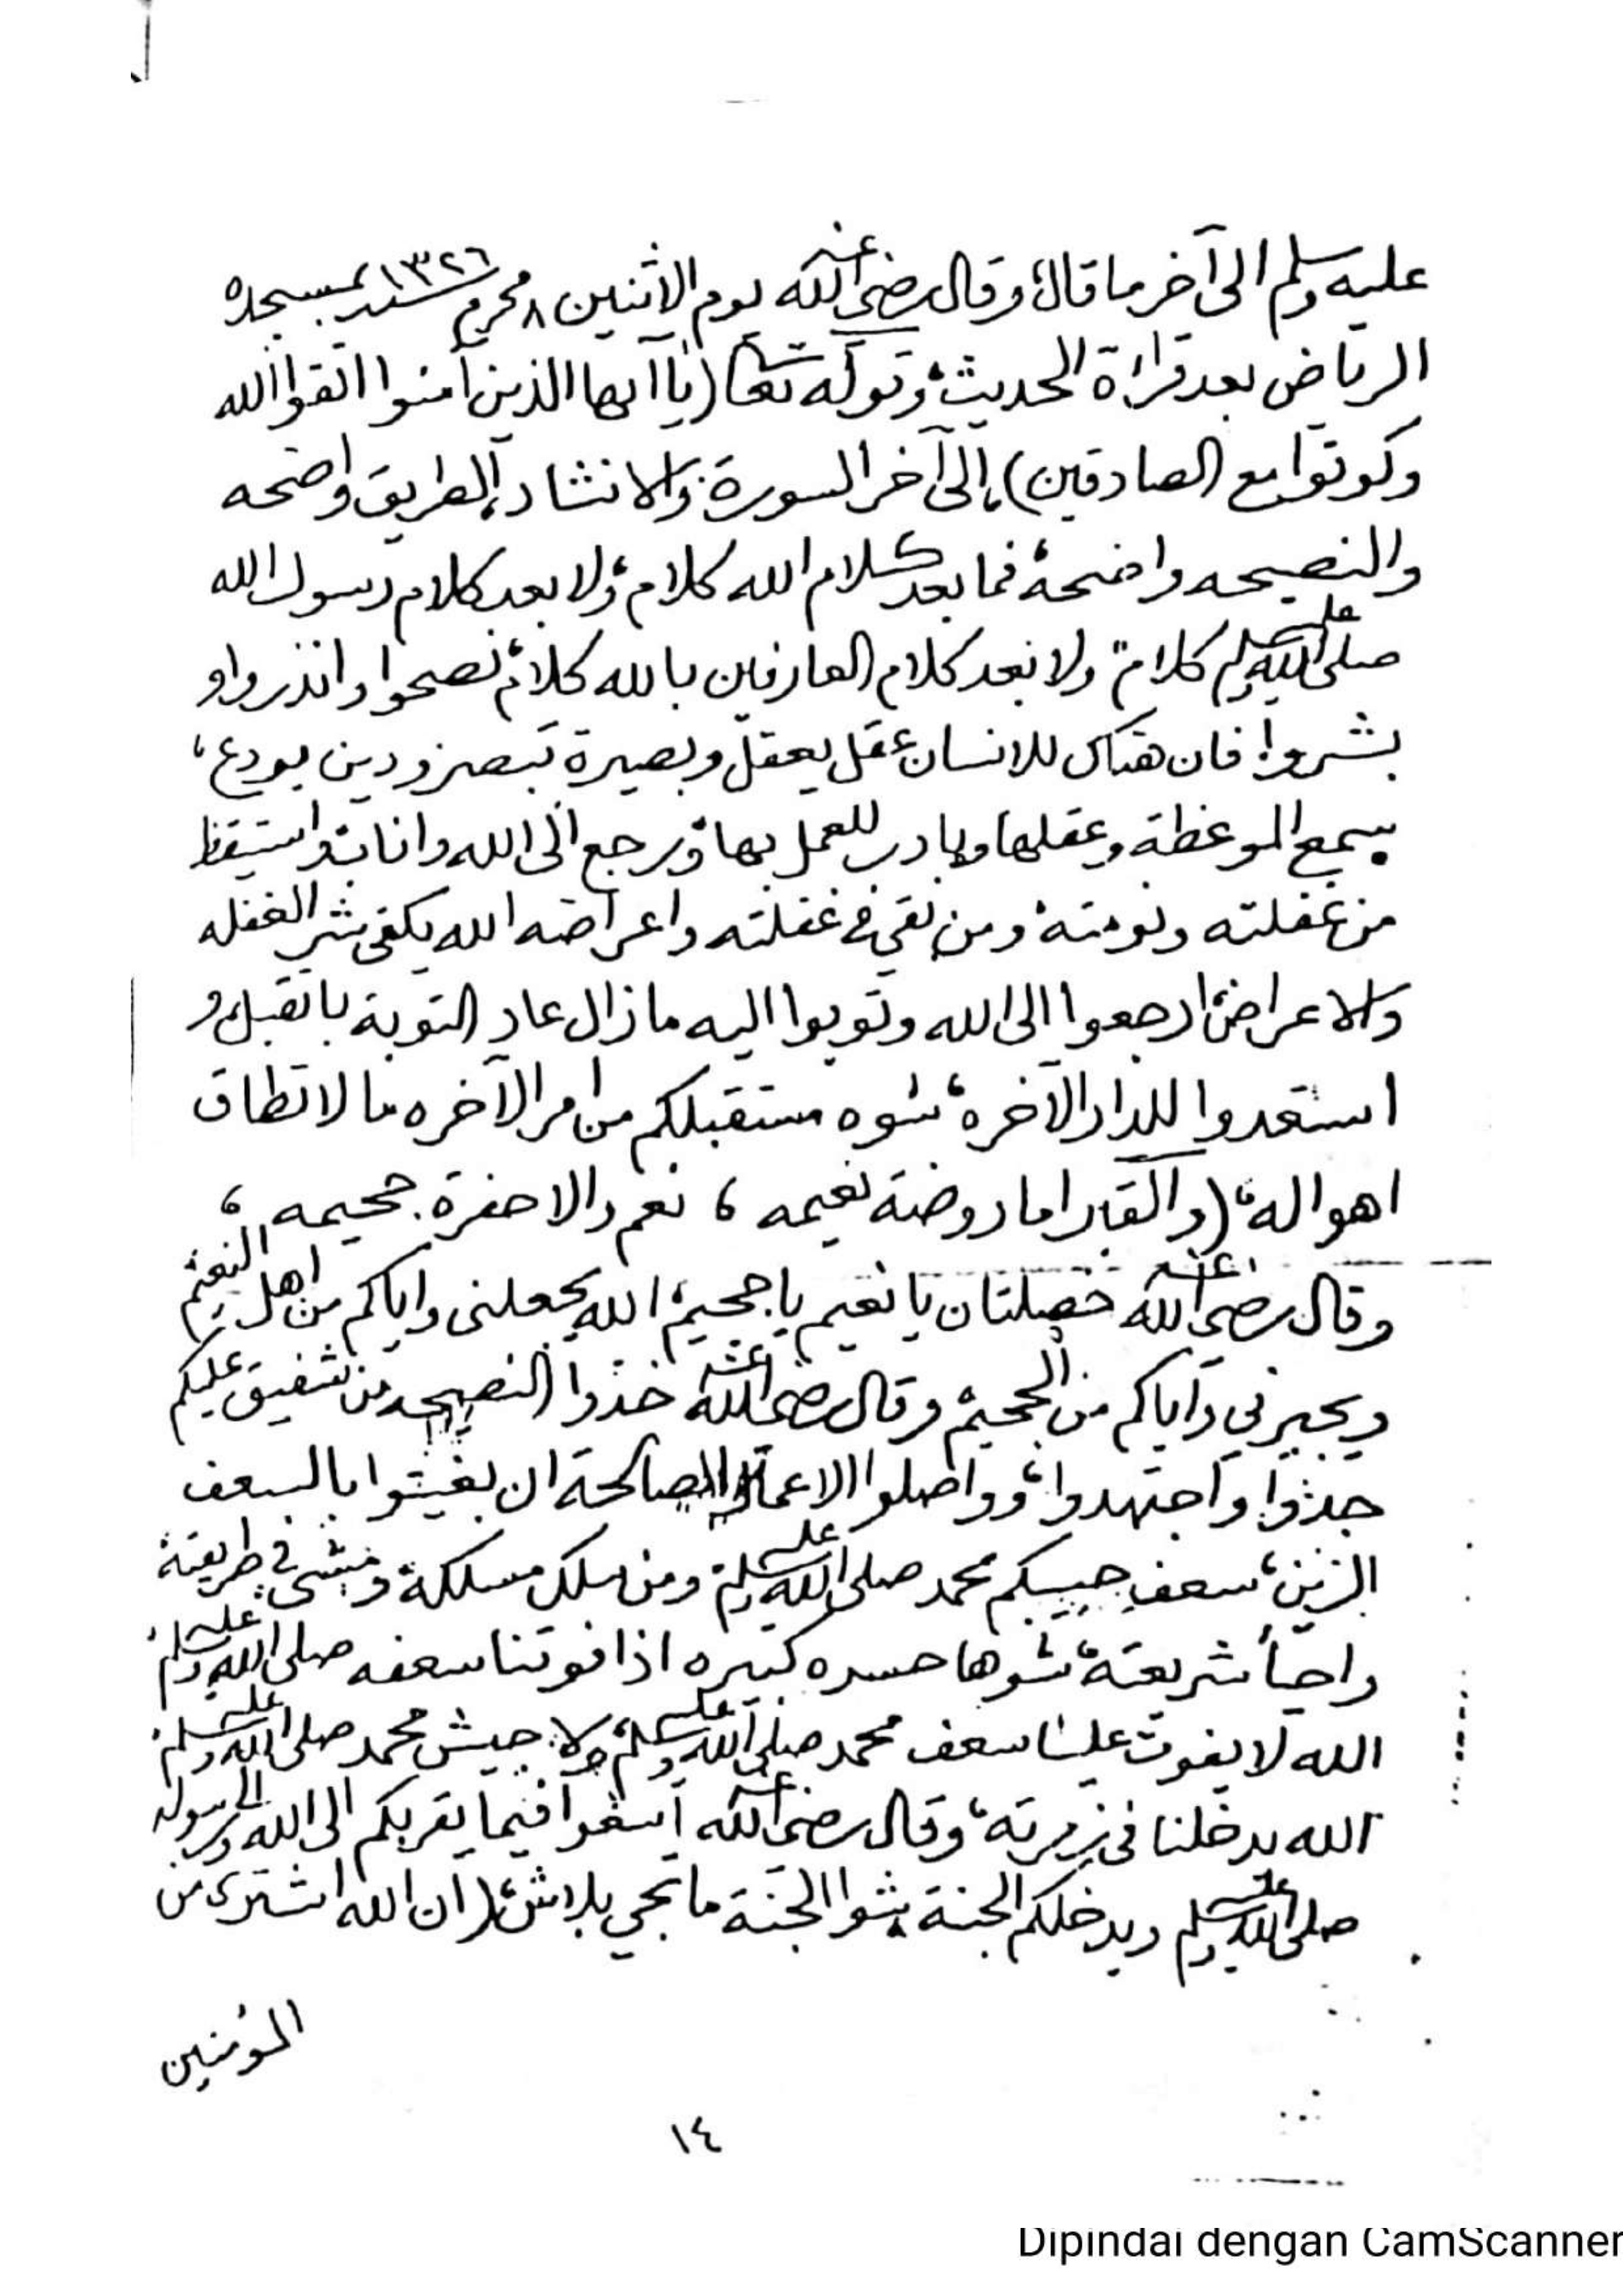 عليه وسلم الى آخر ما قال، وقال رضي الله عنه يوم الاثنين ٨ محرم سنة ١٣٢٦ بمسجده
الرياض بعد قراءة الحديث، وقوله تعالى (يا آيها الذين آمنوا اتقوا الله
وكونوا مع الصادقين) الى آخر السورة والانشاد، الطريق واضحه
والنصيحه واضحة، فما بعد كلام الله كلام، ولا بعد كلام رسول الله
صلى الله عليه وسلم كلام، ولا بعد كلام العارفين بالله كلام، نصحوا وانذروا و
بشروا، فان هناك للانسان عقل يعقل وبصيرة تبصر ودين يودع،
يسمع الموعظة وعقلها وبادر للعمل بها، ورجع الى الله وانابة واستيقظ
من غفلته ونومته، ومن بقي في غفلته واعراضه الله يكفى شر الغفله
والاعراض، ارجعوا الى الله وتوبوا اليه ما زال عاد التوبة با تقبل، و
استعدوا للدار الآخره، شوه مستقبلكم من امر الآخره ما لا تطاق
اهواله، (والقبر اما روضة نعيمه ، نعم والا حفرة جحيمه ،
وقال رضي الله عنه خصلتان يا نعيم يا جحيم، الله يجعلني واياكم من اهل النعيم
ويجيرني واياكم من الجحيم، وقال رضي الله عنه خذوا النصيحه من شفيق عليكم
جدوا واجتهدوا، وواصلوا الاعمال الصالحة ان بغيتوا بالسعف
الزين، سعف حبيبكم محمد صلى الله عليه وسلم، ومن سلك مسلكه، ومشى في طريقته
واحيا شريعته، شوها حسره كبيره اذا فوتنا سعفه صلى الله عليه وسلم،
الله لا يفوت علينا سعف محمد صلى الله عليه وسلم، ولا جيش محمد صلى الله عليه وسلم،
الله يدخلنا في زمرته، وقال رضي الله عنه اسعوا فيما يقربكم الى الله والى رسوله
صلى الله عليه وسلم ويدخلكم الجنة، شوا الجنة ما تجي بلاش، (ان الله اشترى من
المؤمنين
١٤
Dipindai dengan CamScanner